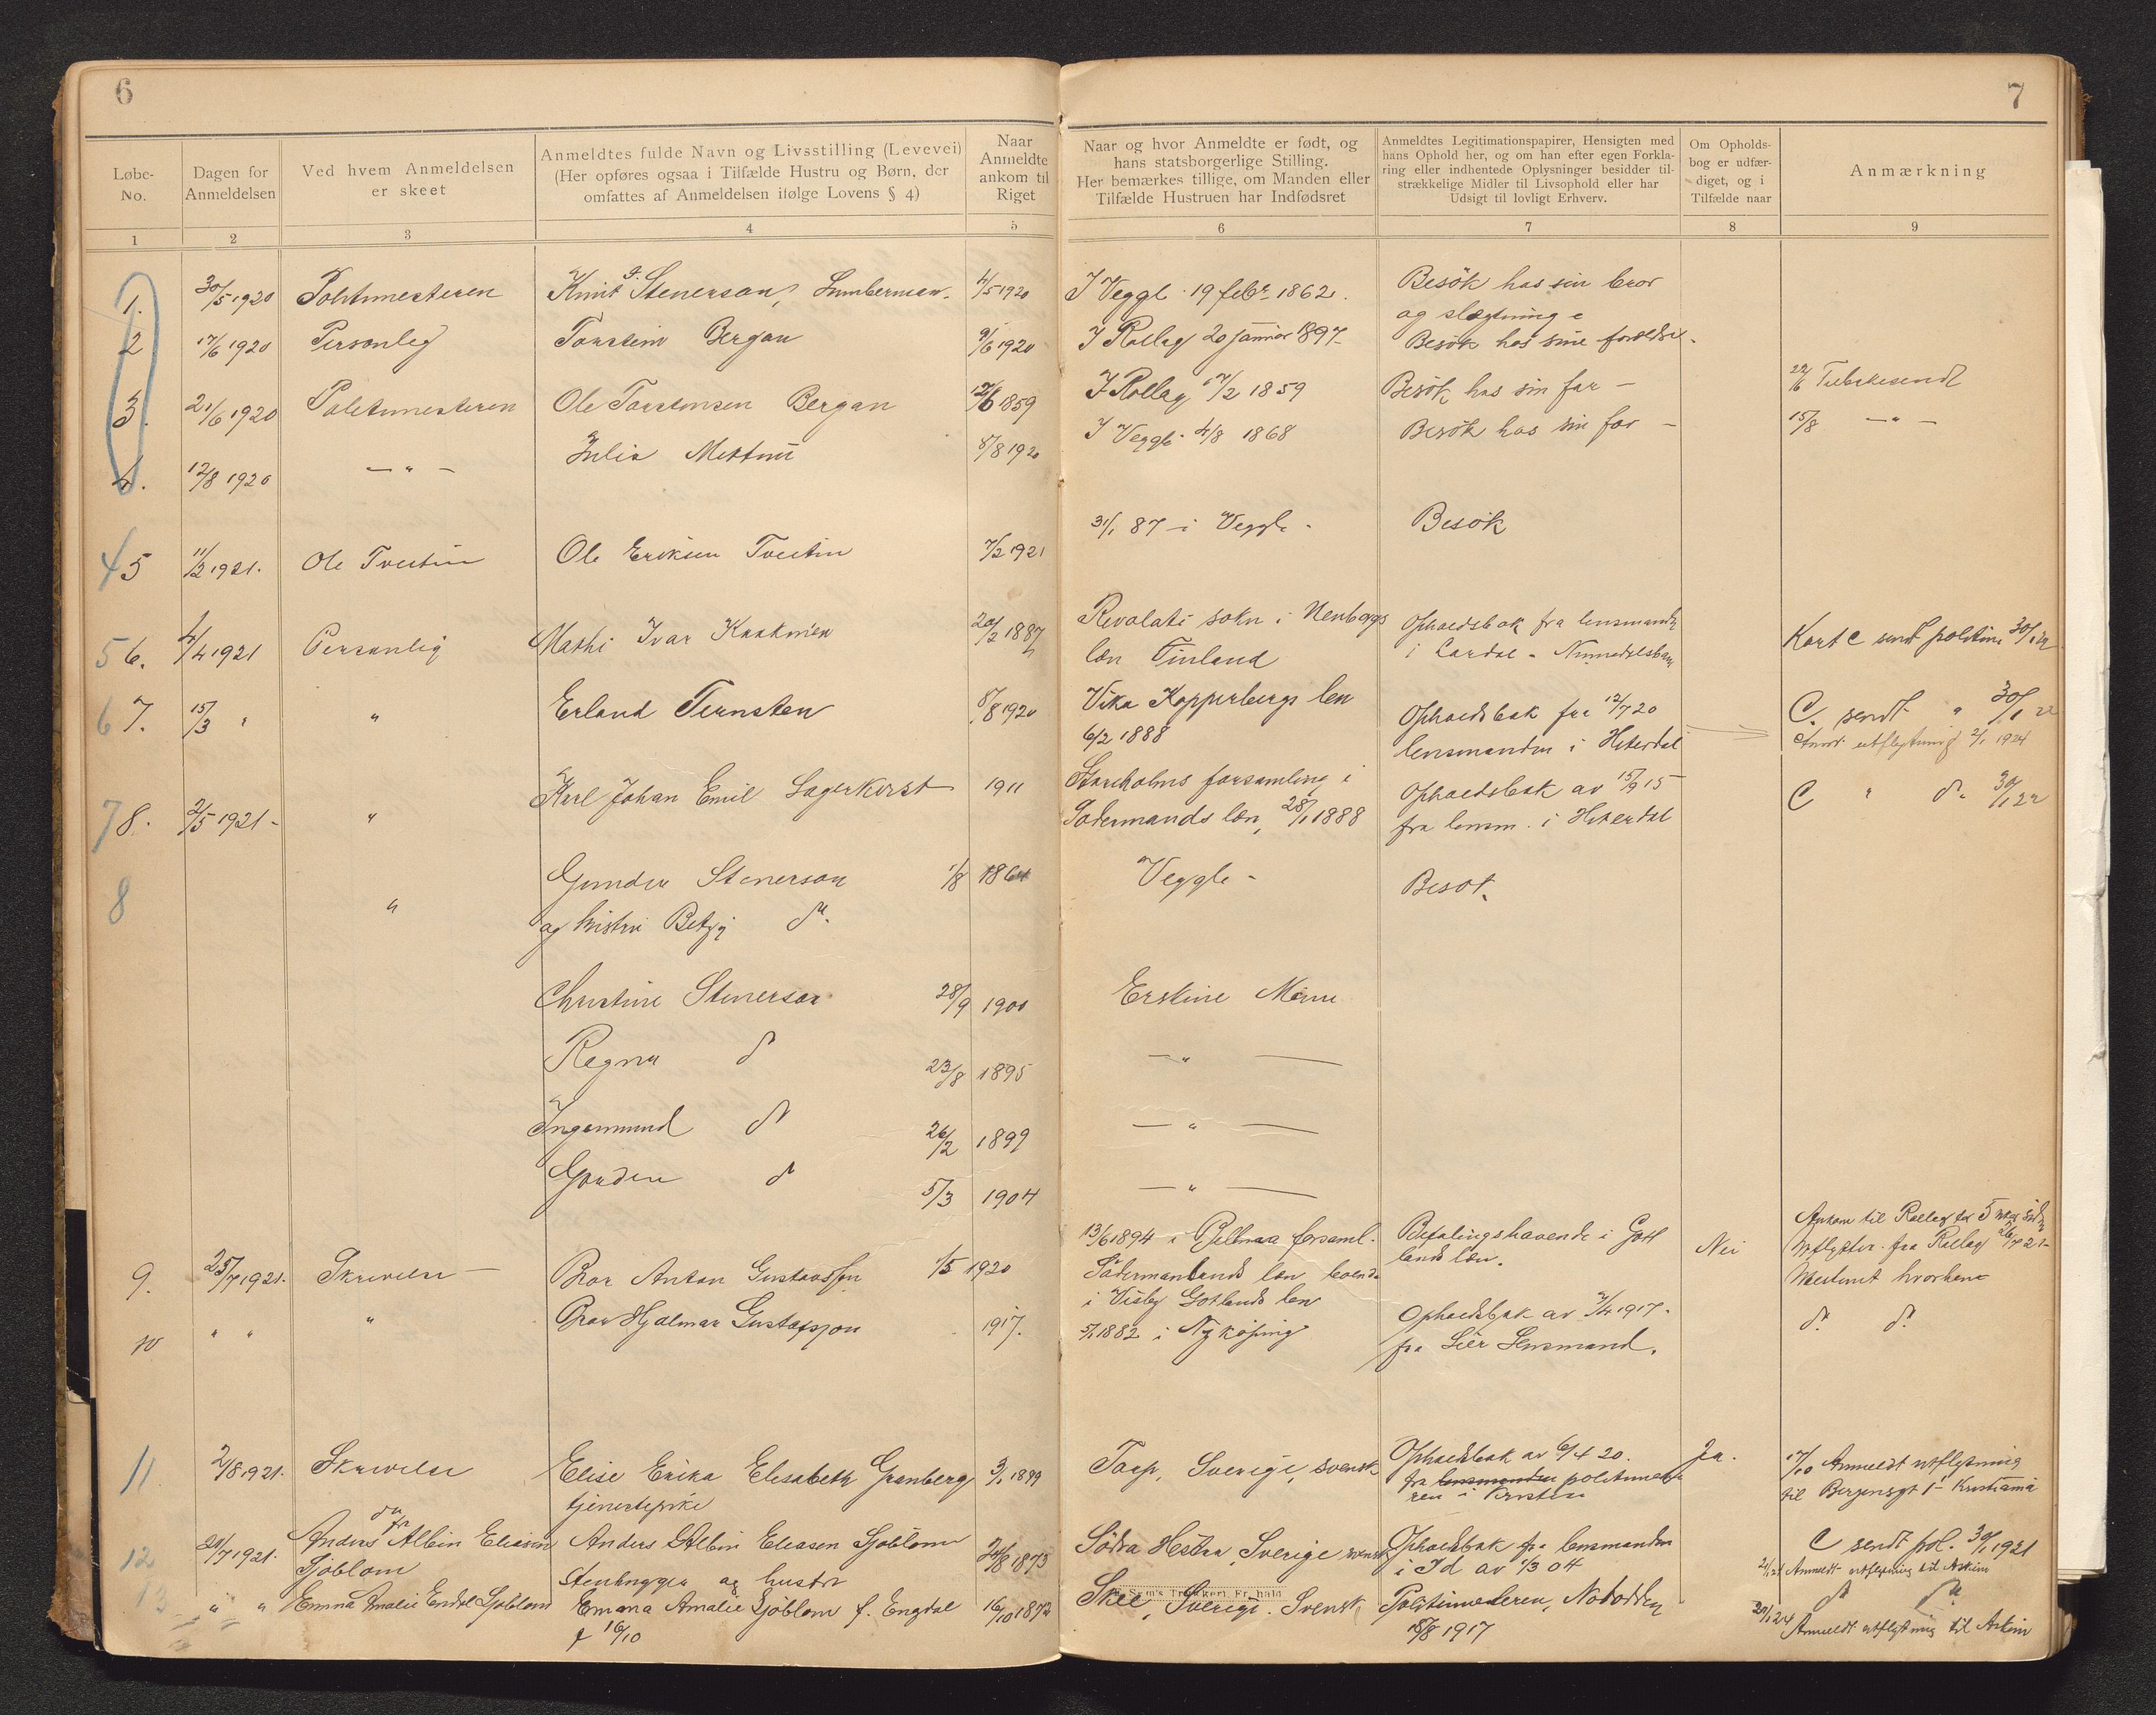 6
Løbe-No.
Dagen for Anmeldelsen
Ved hvem Anmeldelsen er skeet
Anmeldtes fulde Navn og Livsstilling (Levevei)
(Her opføres ogsaa i Tilfælde Hustru og Børn, der
omfattes af Anmeldelsen ifølge Lovens § 4)
Naar Anmeldte ankom til Riget
1 2 3 4 5
1. 30/5 1920 Politimesteren Knut G. Stenerson, Lumberman. 4/5 1920
2 17/6 1920 Personleg Torstein Bergan 9/6 1920
3. 21/6 1920 Politimesteren Ole Torstensen Bergan 12/6 1859
4. 12/8 1920 — " — Julia 8/8 1920
4 5 11/2 1921. Ole Tveitin Ole Eriksen Tveitin 7/2 1921
5 6. 4/4 1921 Personlig Mathi Ivar 20/2 1887
6 7. 15/3 " " Erland Ternsten 8/8 1920
7 8. 2/5 1921 - " Karl Johan Emil Lagerkvist 1911
8 " Gunder Stenerson 1/8 1864
og hustru Betzy do.
Christine Stenerson 28/9 1900
Regna do 23/8 1895
Ingemund do 26/2 1899
Gorden do 5/3 1904
9. 25/7 1921. Skrivelse — Bror Anton Gustavsson 1/5 1920
10 " " " Bror Hjalmar Gustafsson 1917.
11 2/8 1921. Skrivelse Elise Erika Elisabeth Granberg 3/1 1899
tjenestepike
12 21/7 1921. Anders Albin Eliasen Anders Albin Eleasen Sjöblom 24/8 1873
Sjöblom Stenhugger og hustru
13 " " Emma Amalie Endal Sjöblom Emma Amalie Sjöblom f. Engdal 16/10 1872
f 16/10
7
Naar og hvor Anmeldte er født, og
hans statsborgerlige Stilling.
Her bemærkes tillige, om Manden eller
Tilfælde Hustruen har Indfødsret
Anmeldtes Legitimationspapirer, Hensigten med
hans Ophold her, og om han efter egen Forkla-
ring eller indhentede Oplysninger besidder til-
strækkelige Midler til Livsophold eller har
Udsigt til lovligt Erhverv.
Om Opholds-
bog er udfær-
diget, og i
Tilfælde naar
Anmærkning
6 7 8 9
I Veggli 19 febr. 1862. Besök hos sin bror
og slegtninge
I Rollag 20 januar 1897 Besök hos sine foreldre.
I Rollag 12/2 1859 Besök hos sin far — 22/6 Tilbakesendt
I Veggli 4/8 1868 Besök hos sin far — 15/8 — " —
31/1 87 - i Veggli - Besök
sokn i Opholdsbok fra lensmanden
len Finland i Kort C sendt politim 30/1 22
Vika Kopperbergs len Opholdsbok fra 12/7 20 C. sendt " 30/1 22
6/2 1888 lensmanden i Hiterdal Anm. utflytning 2/1 1924
forsamling i Opholdsbok av 15/9 15 C " do. 30/1 22
Södermands len, 28/1 1888 fra lensm. i Hiterdal
Veggli - Besök.
Erskine Minn
— " —
— " —
— " —
Ankom til Rollag
13/6 1894 i forsaml. Befalingshavende i Gott Nei utflyttet fra Rollag 26/7 21
Södermanlands len boende lands len. ubestemt hvorhen
i Visby Gotlands len
5/1 1882 i Nyköping Opholdsbok av 2/4 1917. do. do.
fra Lier Lensmand.
Tarp, Sverige, svensk Opholdsbok av 6/4 20. Ja. 17/10 Anmeldt utflytning
fra lensmanden politimeste
ren i Kristia til Bergensgt 1 Kristiania
Södra Hestra, Sverige svensk Opholdsbok fra lensmanden C sendt pol. 30/1 1921
i Id av 1/3 04 Anmeldt utflytning til Askim
Skee, Sverige. Svensk Politimesteren, Notodden do do.
18/8 1917 29/1 24 Anmeldt utflytning til Askim